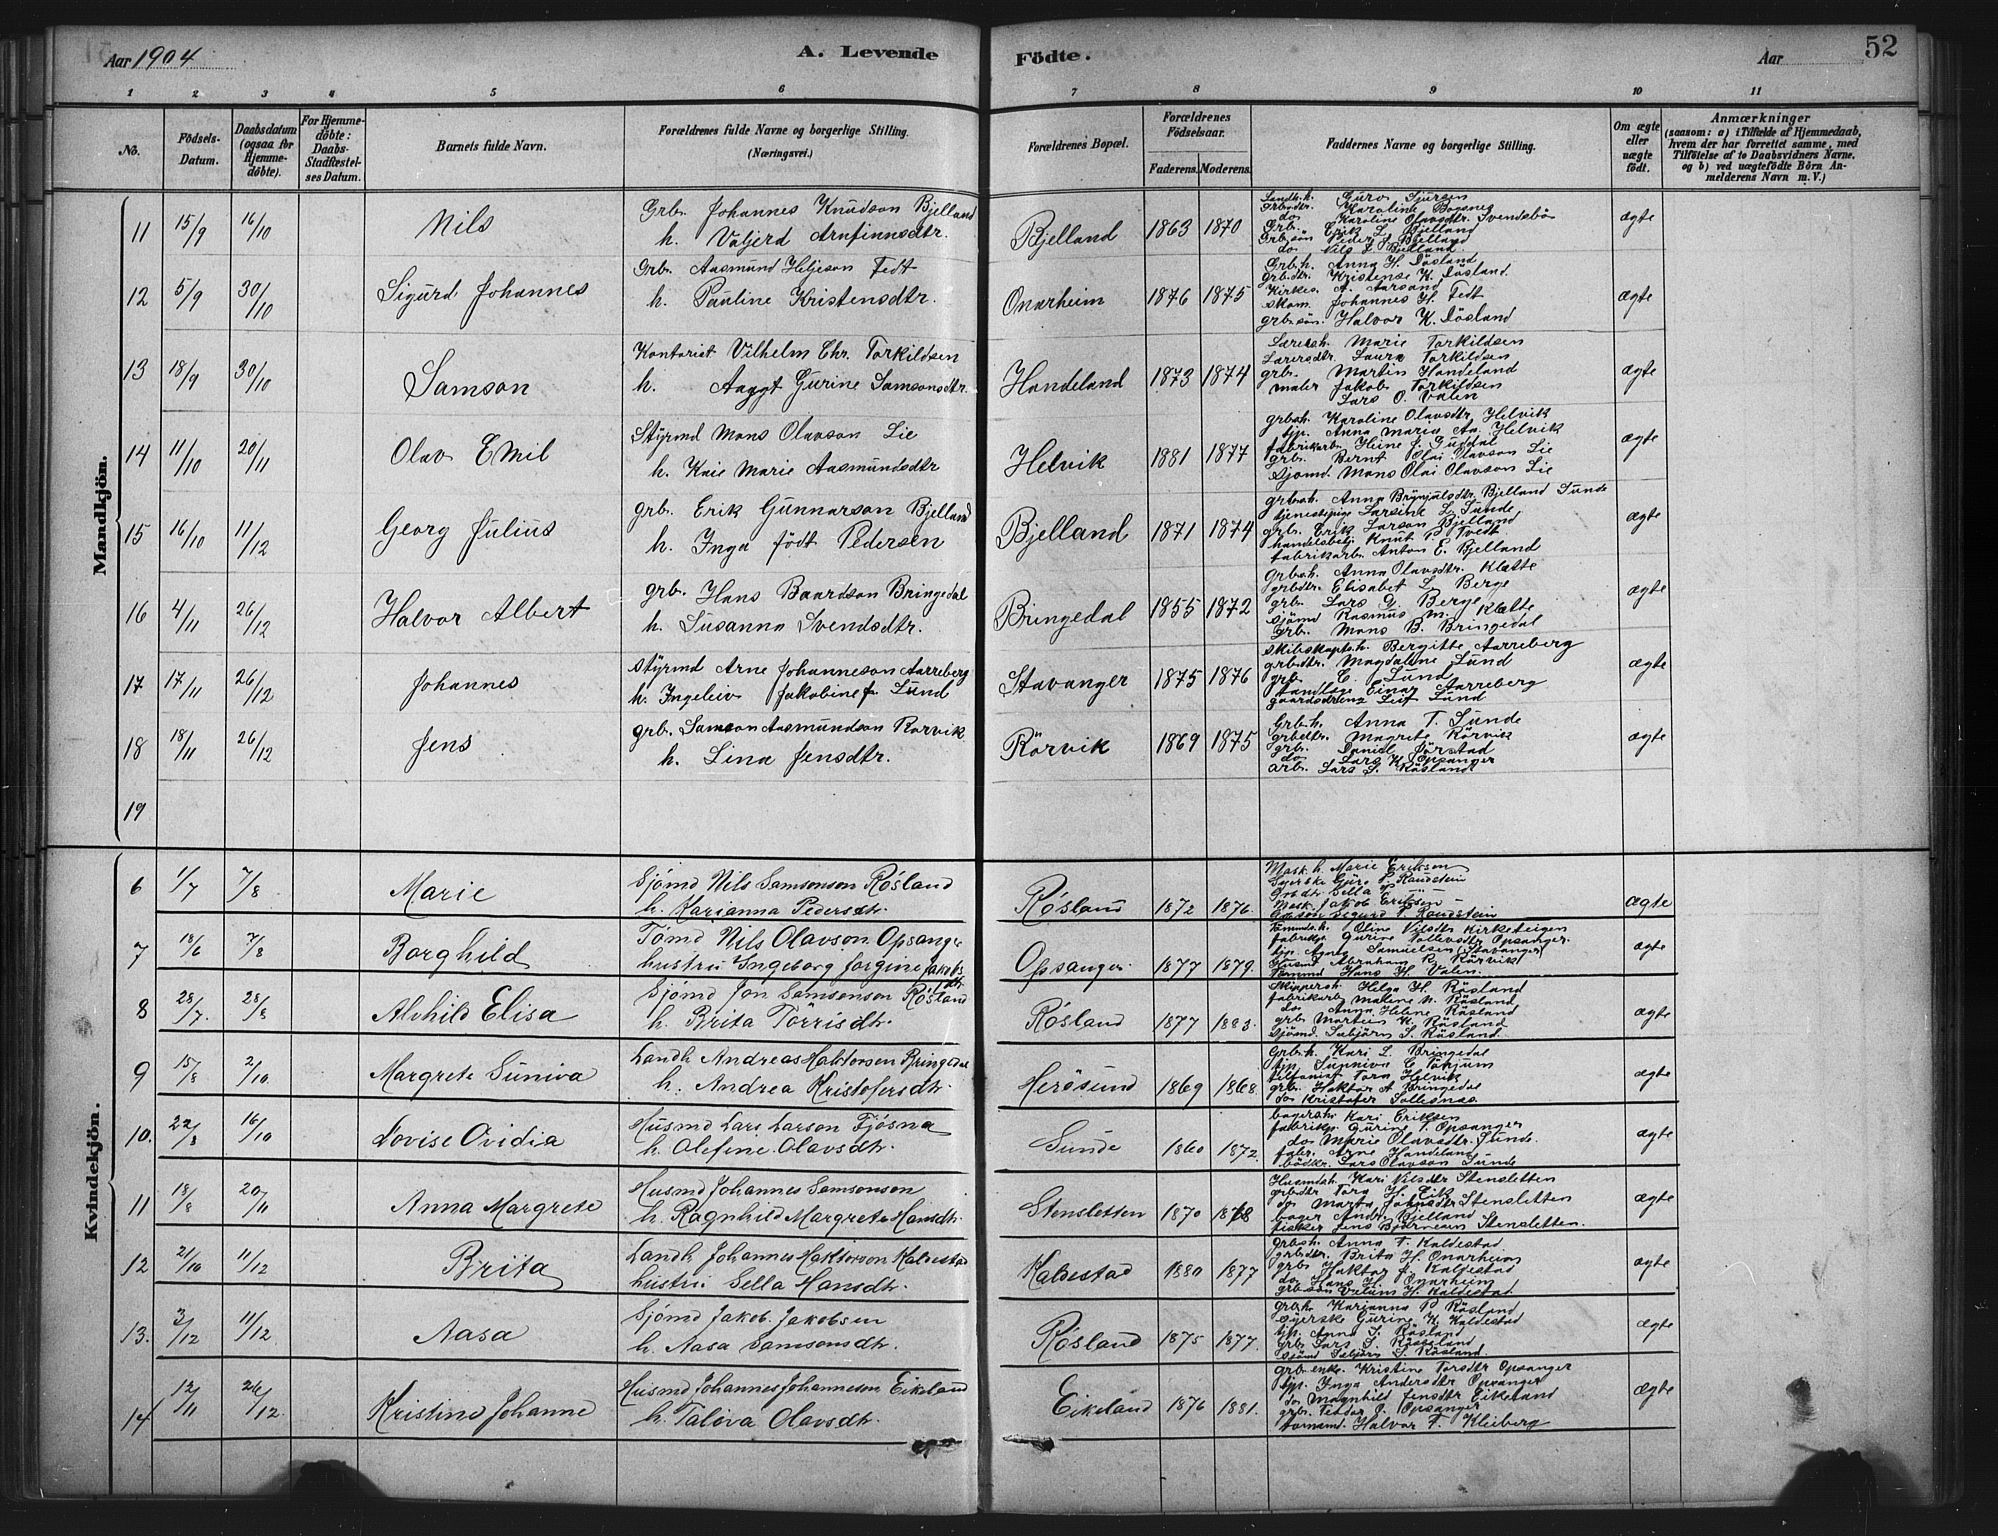 Aar 1904
A. Levende Födte.
Aar
52
1 2 3 4 5 6 7 8 9 10 11
No.
Födsels-Datum.
Daabsdatum (ogsaa for Hjemmedöbte).
For Hjemmedöbte: Daabs-Stadfæstelses Datum.
Barnets fulde Navn.
Forældrenes fulde Navne og borgerlige Stilling.
(Næringsvei.)
Forældrenes Bopæl.
Forældrenes Födselsaar.
Faderens. Moderens.
Faddernes Navne og borgerlige Stilling.
Om ægte eller uægte födt.
Anmærkninger
(saasom: a) i Tilfælde af Hjemmedaab, hvem der har forrettet samme, med Tilföielse af to Daabsvidners Navne, og b) ved uægtefödte Börn Anmelderens Navn m. V.)
Mandkjön.
11 15/9 16/10 Nils
Grbr. Johannes Knudson Bjelland
h. Valjerd Arnfinnsdtr.
Bjelland 1863 1870
Guro Sjursen
Karoline Bogsnes
do Karoline Olavsdtr. Svendsbö
Grb. Erik L. Bjelland
Grb.sön Peder J. Bjelland
do Nils L. Bjelland
ægte
12 5/9 30/10 Sigurd Johannes
Grb. Aasmund Heljeson Tedt
h. Pauline Kristensdtr.
Onarheim 1876 1875
Grb.h. Anna H. Døsland
grb.dtr. Kristense K. Døsland
Kirkes. A. Aarsand
skom. Johannes H. Tedt
grb.sön. Halvor K. Døsland
ægte
13 18/9 30/10 Samson
Kontorist Vilhelm Chr. Torkildsen
h. Aagot Gurine Samsonsdtr.
Handeland 1873 1874
Marie Torkildsen
Lærersdtr. Laura Torkildsen
grb. Martin Handeland
maler Jakob Torkildsen
Lars O. Valen
ægte
14 11/10 20/11 Olav Emil
Styrmd Mons Olavson Lie
h. Kaie Marie Aasmundsdtr
Helvik 1881 1877
grbsh. Karoline Olavsdtr. Helvik
tjp. Anna Maria Aa. Helvik
fabrikarb. Heine J. Guddal
grb. Bernt Olai Olavson Lie
Sjömd. Mons Olai Olavson Lie
ægte
15 16/10 11/12 Georg Julius
grb. Erik Gunnarson Bjelland
h. Inga födt Pedersen
Bjelland 1871 1874
grbesh. Anna Brynjulsdtr. Bjelland Sunde
tjenestepige Larsine L. Sunde
grb. Erik Larson Bjelland
handelsbetj. Knut P. Tvedt
fabrikarb. Anton E. Bjelland
ægte
16 4/11 26/12 Halvor Albert
grb. Hans Baardson Bringedal
h. Susanna Svendsdtr.
Bringedal 1855 1872
Grbsh. Anna Olavsdtr. Klætte
grbdtr. Elisabet L. Berge
grb. Lars G. Berge
sjömd Rasmus M. Klætte
Grb. Mons B. Bringedal
ægte
17 17/11 26/12 Johannes
Styrmd Arne Johanneson Aarreberg
h. Ingeleiv Jakobine f. Lund
Stavanger 1875 1876
Skibskapt.h. Bergitte Aarreberg
grb.dtr. Magdalene Lund
grb. C. Lund
tandlæge Einar Aarreberg
gaardsdreng Leif Lund
ægte
18 18/11 26/12 Jens
grb. Samson Aasmundson Rørvik
h. Lina Jensdtr.
Rörvik 1869 1875
Grb.h. Anna T. Sunde
grbdtr. Magrete Rörvik
grb. Daniel Jörstad
do Lars K. Opsanger
arb. Lars S. Røsland
ægte
19
Kvindekjön.
6 1/7 7/8 Marie
Sjömd Nils Samsonson Røsland
h. Marianna Pedersdtr
Røsland 1872 1876.
Mask.h. Marie Eriksen
Syerske Guro T. Raudstein
Sella
Mask. Jakob Eriksen
Sigurd T. Raudstein
ægte
7 18/6 7/8 Borghild
Tömd Nils Olavson Opsanger
hustru Ingeborg Jorgine Jakobsdtr
Opsanger 1877 1879.
Oline Nilsdtr Kirketeigen
Gurine Tollevsdtr Opsanger.
tjp. Agnes Samuelsen (Stavanger)
Husmd Abraham P. Rörvik
Hans H. Valen.
ægte
8 28/7. 28/8 Alvhild Elisa
Sjömd Jon Samsonson Røsland
h. Brita Törrisdtr.
Røsland 1877 1883.
Skippersh. Helga H. Røsland
fabrikarb. Malene N. Røsland
do Anna Helene Røsland
grb Martein K. Røsland
Sjömd. Sæbjörn S. Røsland.
ægte
9 15/8 2/10 Margrete Suniva
Landh Andreas Haktorsen Bringedal
h. Andrea Kristofersdtr.
Herösund 1869 1868.
Grb.h. Kari L. Bringedal
tjp. Sunniva E. Tökjum
telfonist Tora Helvik
grb. Haktor A. Bringedal
do Kristofer Sollesnes.
ægte
10. 22/8 16/10 Lovise Ovidia
Husmd Lars Larson Tjösna
h. Olefine Olavsdtr.
Sunde 1860 1872.
bagersh. Kari Eriksen
fabrikp. Gurine T. Opsanger
do Marie Olavsdtr. Sunde.
fabr. Arne Handeland
bödkr. Lars Olavson Sunde
ægte
11 18/8 20/11 Anna Margrete
Husmd Johannes Samsonson
h. Ragnhild Margrete Hansdtr.
Stensletten 1870 1878
Husmdsh. Kari Nilsdtr Stensletten
grbdtr Tora H. Eik
do Marta Johnsdtr Stensletten
bager Andr. Bjelland
fisker Jens Bjørneseen Stensletten.
ægte
12 21/10 11/12 Brita
Landh Johannes Haktorson Kaldestad
hustru Sella Hansdtr.
Kaldestad 1880 1877
grbsh. Anna F. Kaldestad
grbdtr. Brita H. Onarheim
grb Haktor J. Kaldestad
do Hans H. Onarheim
grb.sön Valum H. Kaldestad.
ægte
13. 3/12 11/12 Aasa
Sjömd Jakob Jakobsen
h. Aasa Samsonsdtr.
Røsland 1875 1877.
grbsh. Karianna P. Røsland
Syerske Gurine K. Kaldestad
tjp. Anna S. Røsland
Grb Lars S. Røsland
sjömd Sæbjörn S. Røsland
ægte
14 12/11 26/12. Kristina Johanne
Husmd Johannes Johanneson Eikeland
h. Taløva Olavsdtr.
Eikeland 1876 1881.
grb.enke. Kristine Torsdtr Opsanger
tjp. Inga Andersdtr Opsanger
do Magnhild Jensdtr Eikeland
grb. Teodor O. Opsanger
Halvor T. Kleiberg
ægte